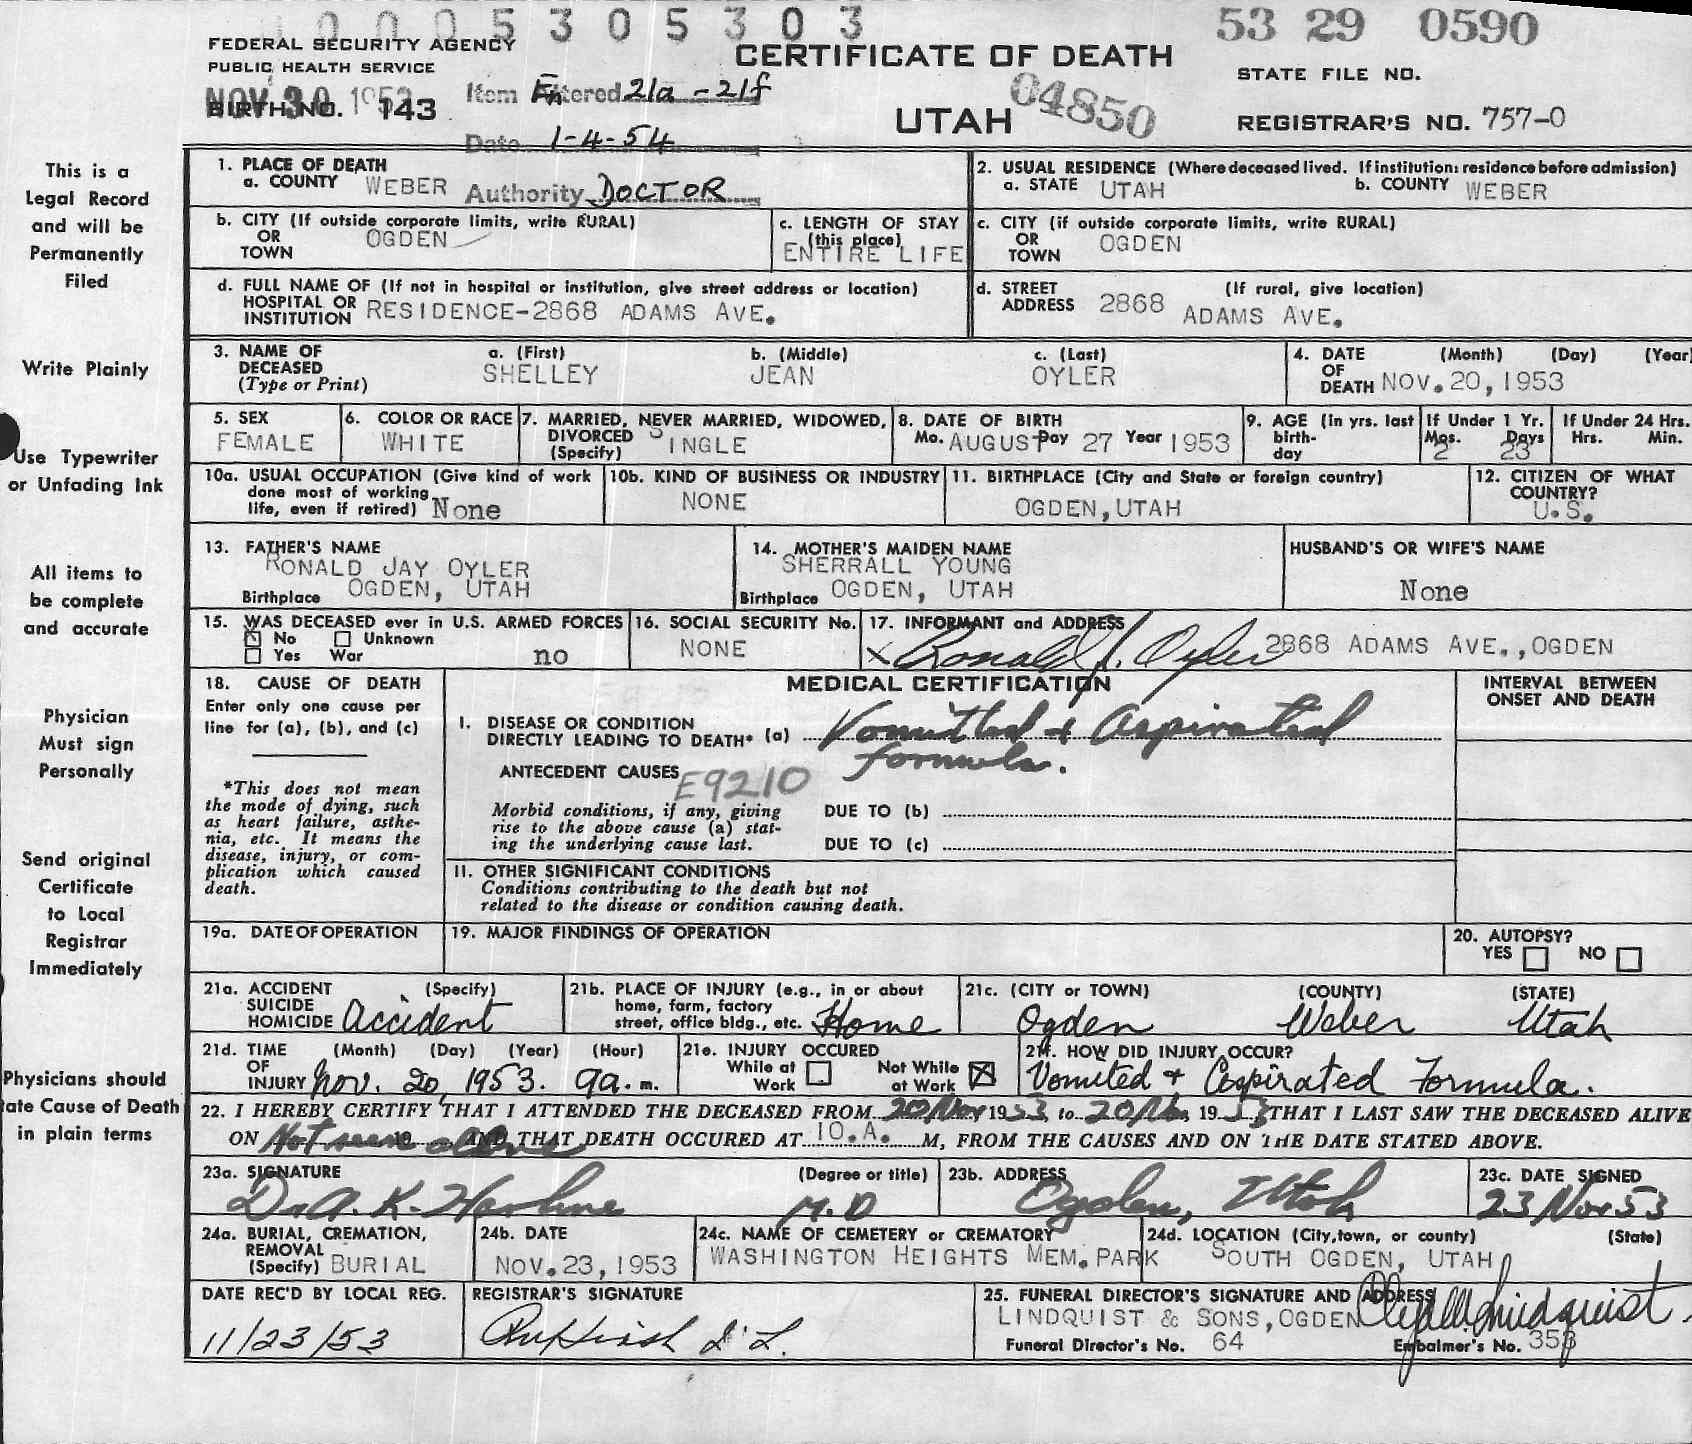 0005305303
53 29 0590
FEDERAL SECURITY AGENCY
PUBLIC HEALTH SERVICE
CERTIFICATE OF DEATH
STATE FILE NO.
NOV 30 1953
BIRTH NO. 143
Item Entered 21a-21f
UTAH
04850
REGISTRAR'S NO. 757-0
Date 1-4-54
This is a
Legal Record
and will be
Permanently
Filed
1. PLACE OF DEATH
a. COUNTY WEBER
Authority DOCTOR
2. USUAL RESIDENCE (Where deceased lived. If institution: residence before admission)
a. STATE UTAH b. COUNTY WEBER
b. CITY (If outside corporate limits, write RURAL)
OR
TOWN OGDEN
c. LENGTH OF STAY
(this place)
ENTIRE LIFE
c. CITY (if outside corporate limits, write RURAL)
OR
TOWN OGDEN
d. FULL NAME OF (If not in hospital or institution, give street address or location)
HOSPITAL OR
INSTITUTION RESIDENCE-2868 ADAMS AVE.
d. STREET (If rural, give location)
ADDRESS 2868 ADAMS AVE.
Write Plainly
3. NAME OF
DECEASED
(Type or Print)
a. (First) b. (Middle) c. (Last)
SHELLEY JEAN OYLER
4. DATE (Month) (Day) (Year)
OF
DEATH NOV. 20, 1953
Use Typewriter
or Unfading Ink
5. SEX
FEMALE
6. COLOR OR RACE
WHITE
7. MARRIED, NEVER MARRIED, WIDOWED,
DIVORCED
(Specify) SINGLE
8. DATE OF BIRTH
Mo. AUGUST Day 27 Year 1953
9. AGE (in yrs. last
birth-
day
If Under 1 Yr.
Mos. Days
2 23
If Under 24 Hrs.
Hrs. Min.
10a. USUAL OCCUPATION (Give kind of work
done most of working
life, even if retired) None
10b. KIND OF BUSINESS OR INDUSTRY
NONE
11. BIRTHPLACE (City and State or foreign country)
OGDEN, UTAH
12. CITIZEN OF WHAT
COUNTRY?
U.S.
All items to
be complete
and accurate
13. FATHER'S NAME
RONALD JAY OYLER
Birthplace OGDEN, UTAH
14. MOTHER'S MAIDEN NAME
SHERRALL YOUNG
Birthplace OGDEN, UTAH
HUSBAND'S OR WIFE'S NAME
None
15. WAS DECEASED ever in U.S. ARMED FORCES
No Unknown
Yes War no
16. SOCIAL SECURITY No.
NONE
17. INFORMANT and ADDRESS
X Ronald J. Oyler 2868 ADAMS AVE., OGDEN
Physician
Must sign
Personally
18. CAUSE OF DEATH
Enter only one cause per
line for (a), (b), and (c)
*This does not mean
the mode of dying, such
as heart failure, asthe-
nia, etc. It means the
disease, injury, or com-
plication which caused
death.
MEDICAL CERTIFICATION
INTERVAL BETWEEN
ONSET AND DEATH
I. DISEASE OR CONDITION
DIRECTLY LEADING TO DEATH* (a) Vomitted + aspirated
formula.
ANTECEDENT CAUSES E9210
Morbid conditions, if any, giving
rise to the above cause (a) stat-
ing the underlying cause last.
DUE TO (b)
DUE TO (c)
II. OTHER SIGNIFICANT CONDITIONS
Conditions contributing to the death but not
related to the disease or condition causing death.
Send original
Certificate
to Local
Registrar
Immediately
19a. DATE OF OPERATION
19. MAJOR FINDINGS OF OPERATION
20. AUTOPSY?
YES NO
21a. ACCIDENT (Specify)
SUICIDE
HOMICIDE Accident
21b. PLACE OF INJURY (e.g., in or about
home, farm, factory
street, office bldg., etc. Home
21c. (CITY or TOWN) (COUNTY) (STATE)
Ogden Weber Utah
Physicians should
ate Cause of Death
in plain terms
21d. TIME (Month) (Day) (Year) (Hour)
OF
INJURY Nov. 20, 1953. 9a. m.
21e. INJURY OCCURED
While at Work
Not While at Work
21f. HOW DID INJURY OCCUR?
Vomited + Aspirated Formula.
22. I HEREBY CERTIFY THAT I ATTENDED THE DECEASED FROM 20 Nov 1953, to 20 Nov, 1953 THAT I LAST SAW THE DECEASED ALIVE
ON Not seen alive 19 AND THAT DEATH OCCURED AT 10.A. M, FROM THE CAUSES AND ON THE DATE STATED ABOVE.
23a. SIGNATURE (Degree or title)
Dr A. K. M.D
23b. ADDRESS
Ogden, Utah
23c. DATE SIGNED
23 Nov 53
24a. BURIAL, CREMATION,
REMOVAL
(Specify) BURIAL
24b. DATE
NOV. 23, 1953
24c. NAME OF CEMETERY or CREMATORY
WASHINGTON HEIGHTS MEM. PARK
24d. LOCATION (City, town, or county) (State)
SOUTH OGDEN, UTAH
DATE REC'D BY LOCAL REG.
11/23/53
REGISTRAR'S SIGNATURE
25. FUNERAL DIRECTOR'S SIGNATURE AND ADDRESS
LINDQUIST & SONS, OGDEN Lindquist
Funeral Director's No. 64 Embalmer's No. 353